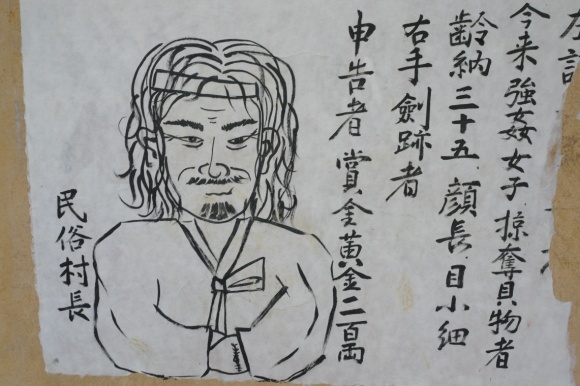 左記
今来強姦女子 掠奪貝物者
齡納三十五 顔長 目小細
右手劍跡者
申告者 賞金黄金二百両
民俗村長